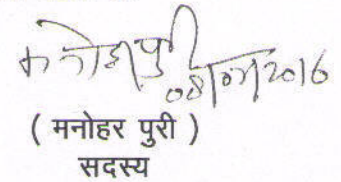 मनोहर पुरी
08/07/2016
( मनोहर पुरी )
सदस्य